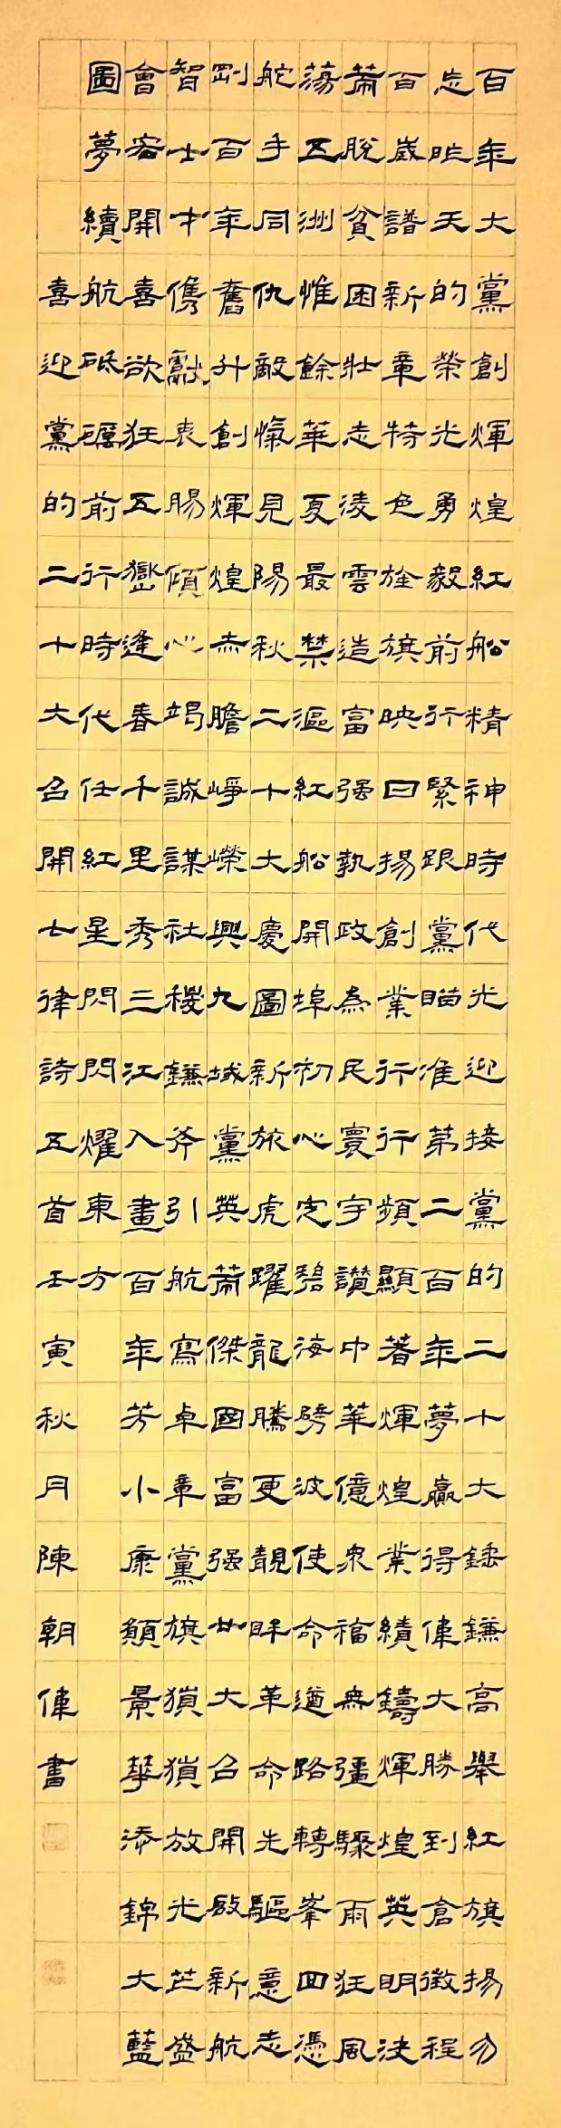 百年大黨創煇煌紅船精神時代光迎接黨的二十大錘鐮高舉紅旗揚勿
忘昨天的榮光勇毅前行緊跟黨瞄准第二百年夢贏得偉大勝到倉徵程
百歲譜新章特色旌旗映日揚創業行行頻顯著煇煌業績鑄煇煌英明決
蕭脫貧困壯志淩雲造富强執政為民寰宇讚中華億衆福無彊驟雨狂風
蕩五洲惟餘華夏最禁漚紅船開埠初心定碧海劈波使命遒路轉峯回憑
舵手同仇敵愾見陽秋二十大慶圖新旅虎躍龍騰更靚眸革命先驅意志
剛百年奮升創煇煌赤膽崢嶸興九城黨英蕭傑國富强廿大召開啟新航
智士才儁獻衷腸傾心竭誠謀社稷鐮斧引航寫卓章黨旗獵獵放光芒盛
會容開喜欲狂五嶽逢春千里秀三江入畫百年芳小康願景華添錦大藍
圖夢續航砥礪前行時代任紅星閃閃耀東方
喜迎黨的二十大召開七律詩五首壬寅秋月陳朝偉書